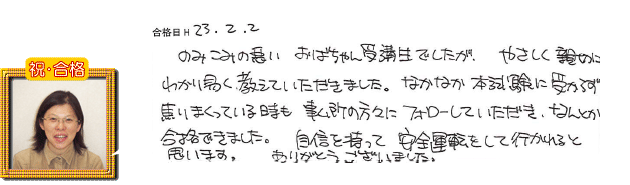 合格日 H 23.2.2
祝・合格
のみこみの悪い おばちゃん受講生でしたが、 やさしく 親切に
わかり易く教えていただきました。なかなか 本試験に受からず
思いまくっている時も 事ム所の方々に フォローしていただき、なんとか
合格できました。 自信を持って 安全運転をして行かれると
思います。 ありがとうございました。